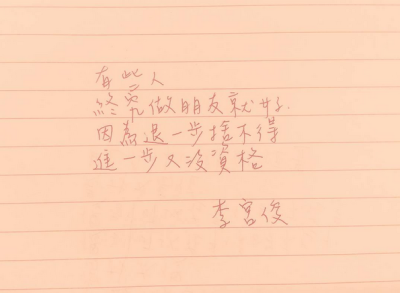 有些人
終究做朋友就好.
因為退一步捨不得
進一步又沒資格
李宮俊